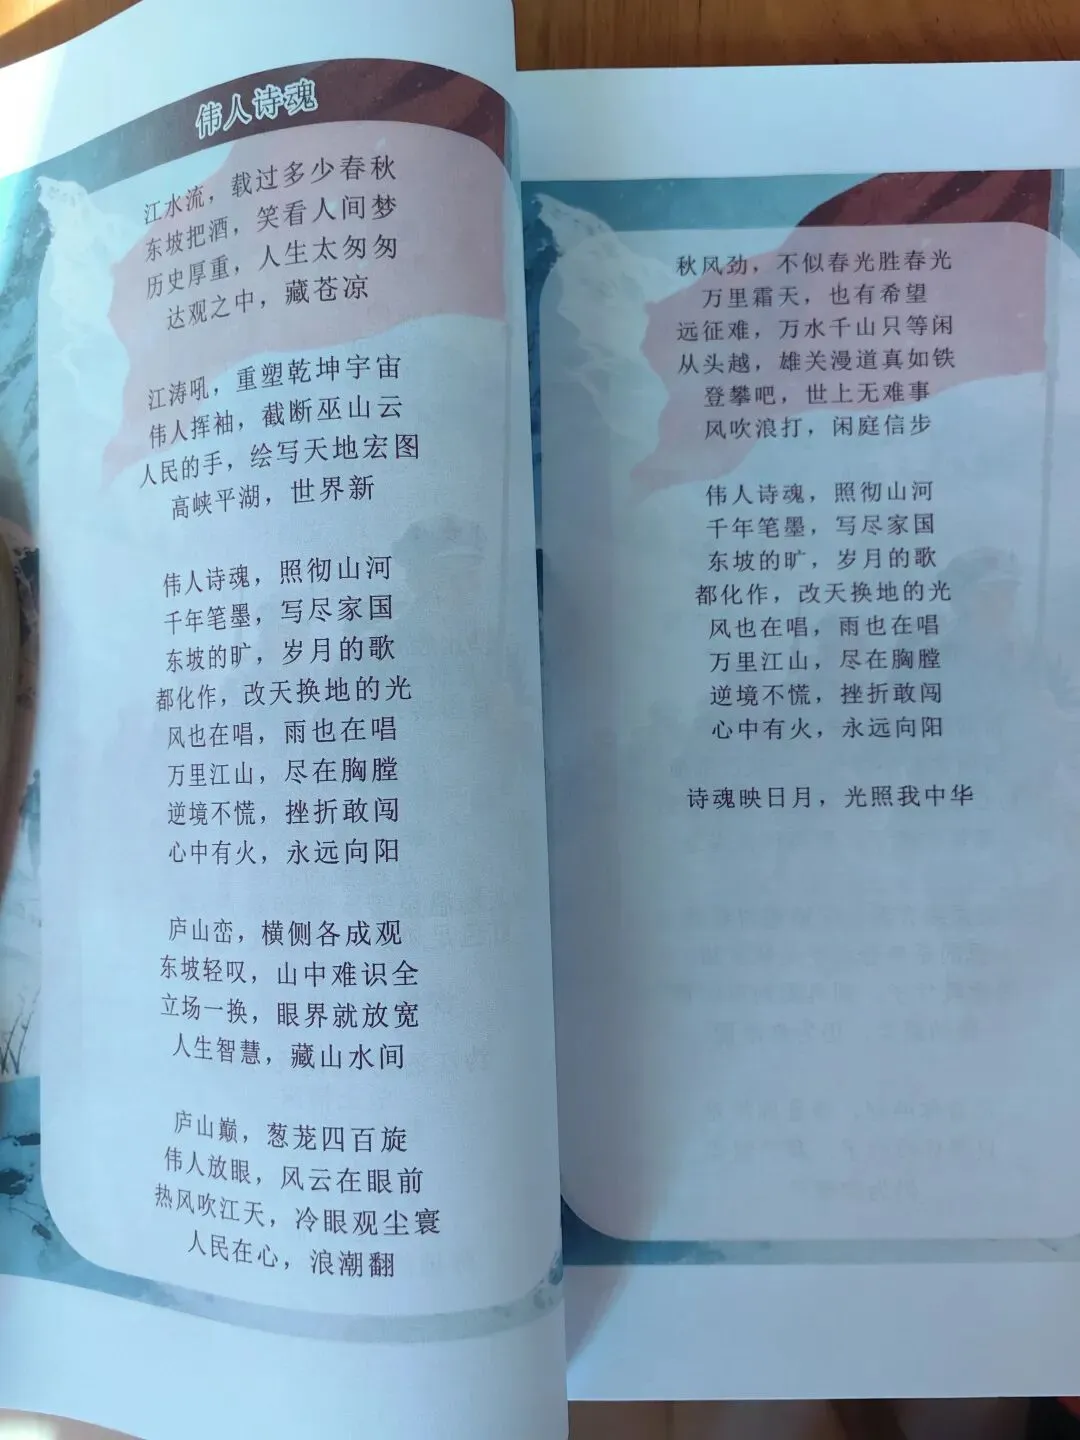 伟人诗魂
江水流，载过多少春秋
东坡把酒，笑看人间梦
历史厚重，人生太匆匆
达观之中，藏苍凉
江涛吼，重塑乾坤宇宙
伟人挥袖，截断巫山云
人民的手，绘写天地宏图
高峡平湖，世界新
伟人诗魂，照彻山河
千年笔墨，写尽家国
东坡的旷，岁月的歌
都化作，改天换地的光
风也在唱，雨也在唱
万里江山，尽在胸膛
逆境不慌，挫折敢闯
心中有火，永远向阳
庐山峦，横侧各成观
东坡轻叹，山中难识全
立场一换，眼界就放宽
人生智慧，藏山水间
庐山巅，葱茏四百旋
伟人放眼，风云在眼前
热风吹江天，冷眼观尘寰
人民在心，浪潮翻
秋风劲，不似春光胜春光
万里霜天，也有希望
远征难，万水千山只等闲
从头越，雄关漫道真如铁
登攀吧，世上无难事
风吹浪打，闲庭信步
伟人诗魂，照彻山河
千年笔墨，写尽家国
东坡的旷，岁月的歌
都化作，改天换地的光
风也在唱，雨也在唱
万里江山，尽在胸膛
逆境不慌，挫折敢闯
心中有火，永远向阳
诗魂映日月，光照我中华